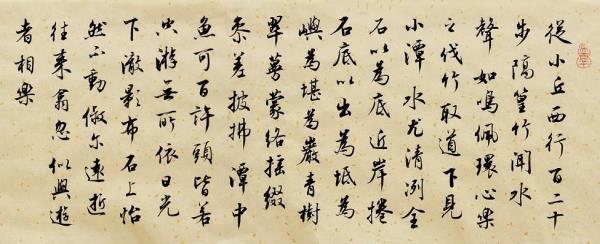 從小丘西行百二十
步隔篁竹聞水
聲如鳴佩環心樂
之伐竹取道下見
小潭水尤清冽全
石以為底近岸捲
石底以出為坻為
嶼為堪為巖青樹
翠蔓蒙絡搖綴
參差披拂潭中
魚可百許頭皆若
空游無所依日光
下澈影布石上怡
然不動俶爾遠逝
往來翕忽似與遊
者相樂